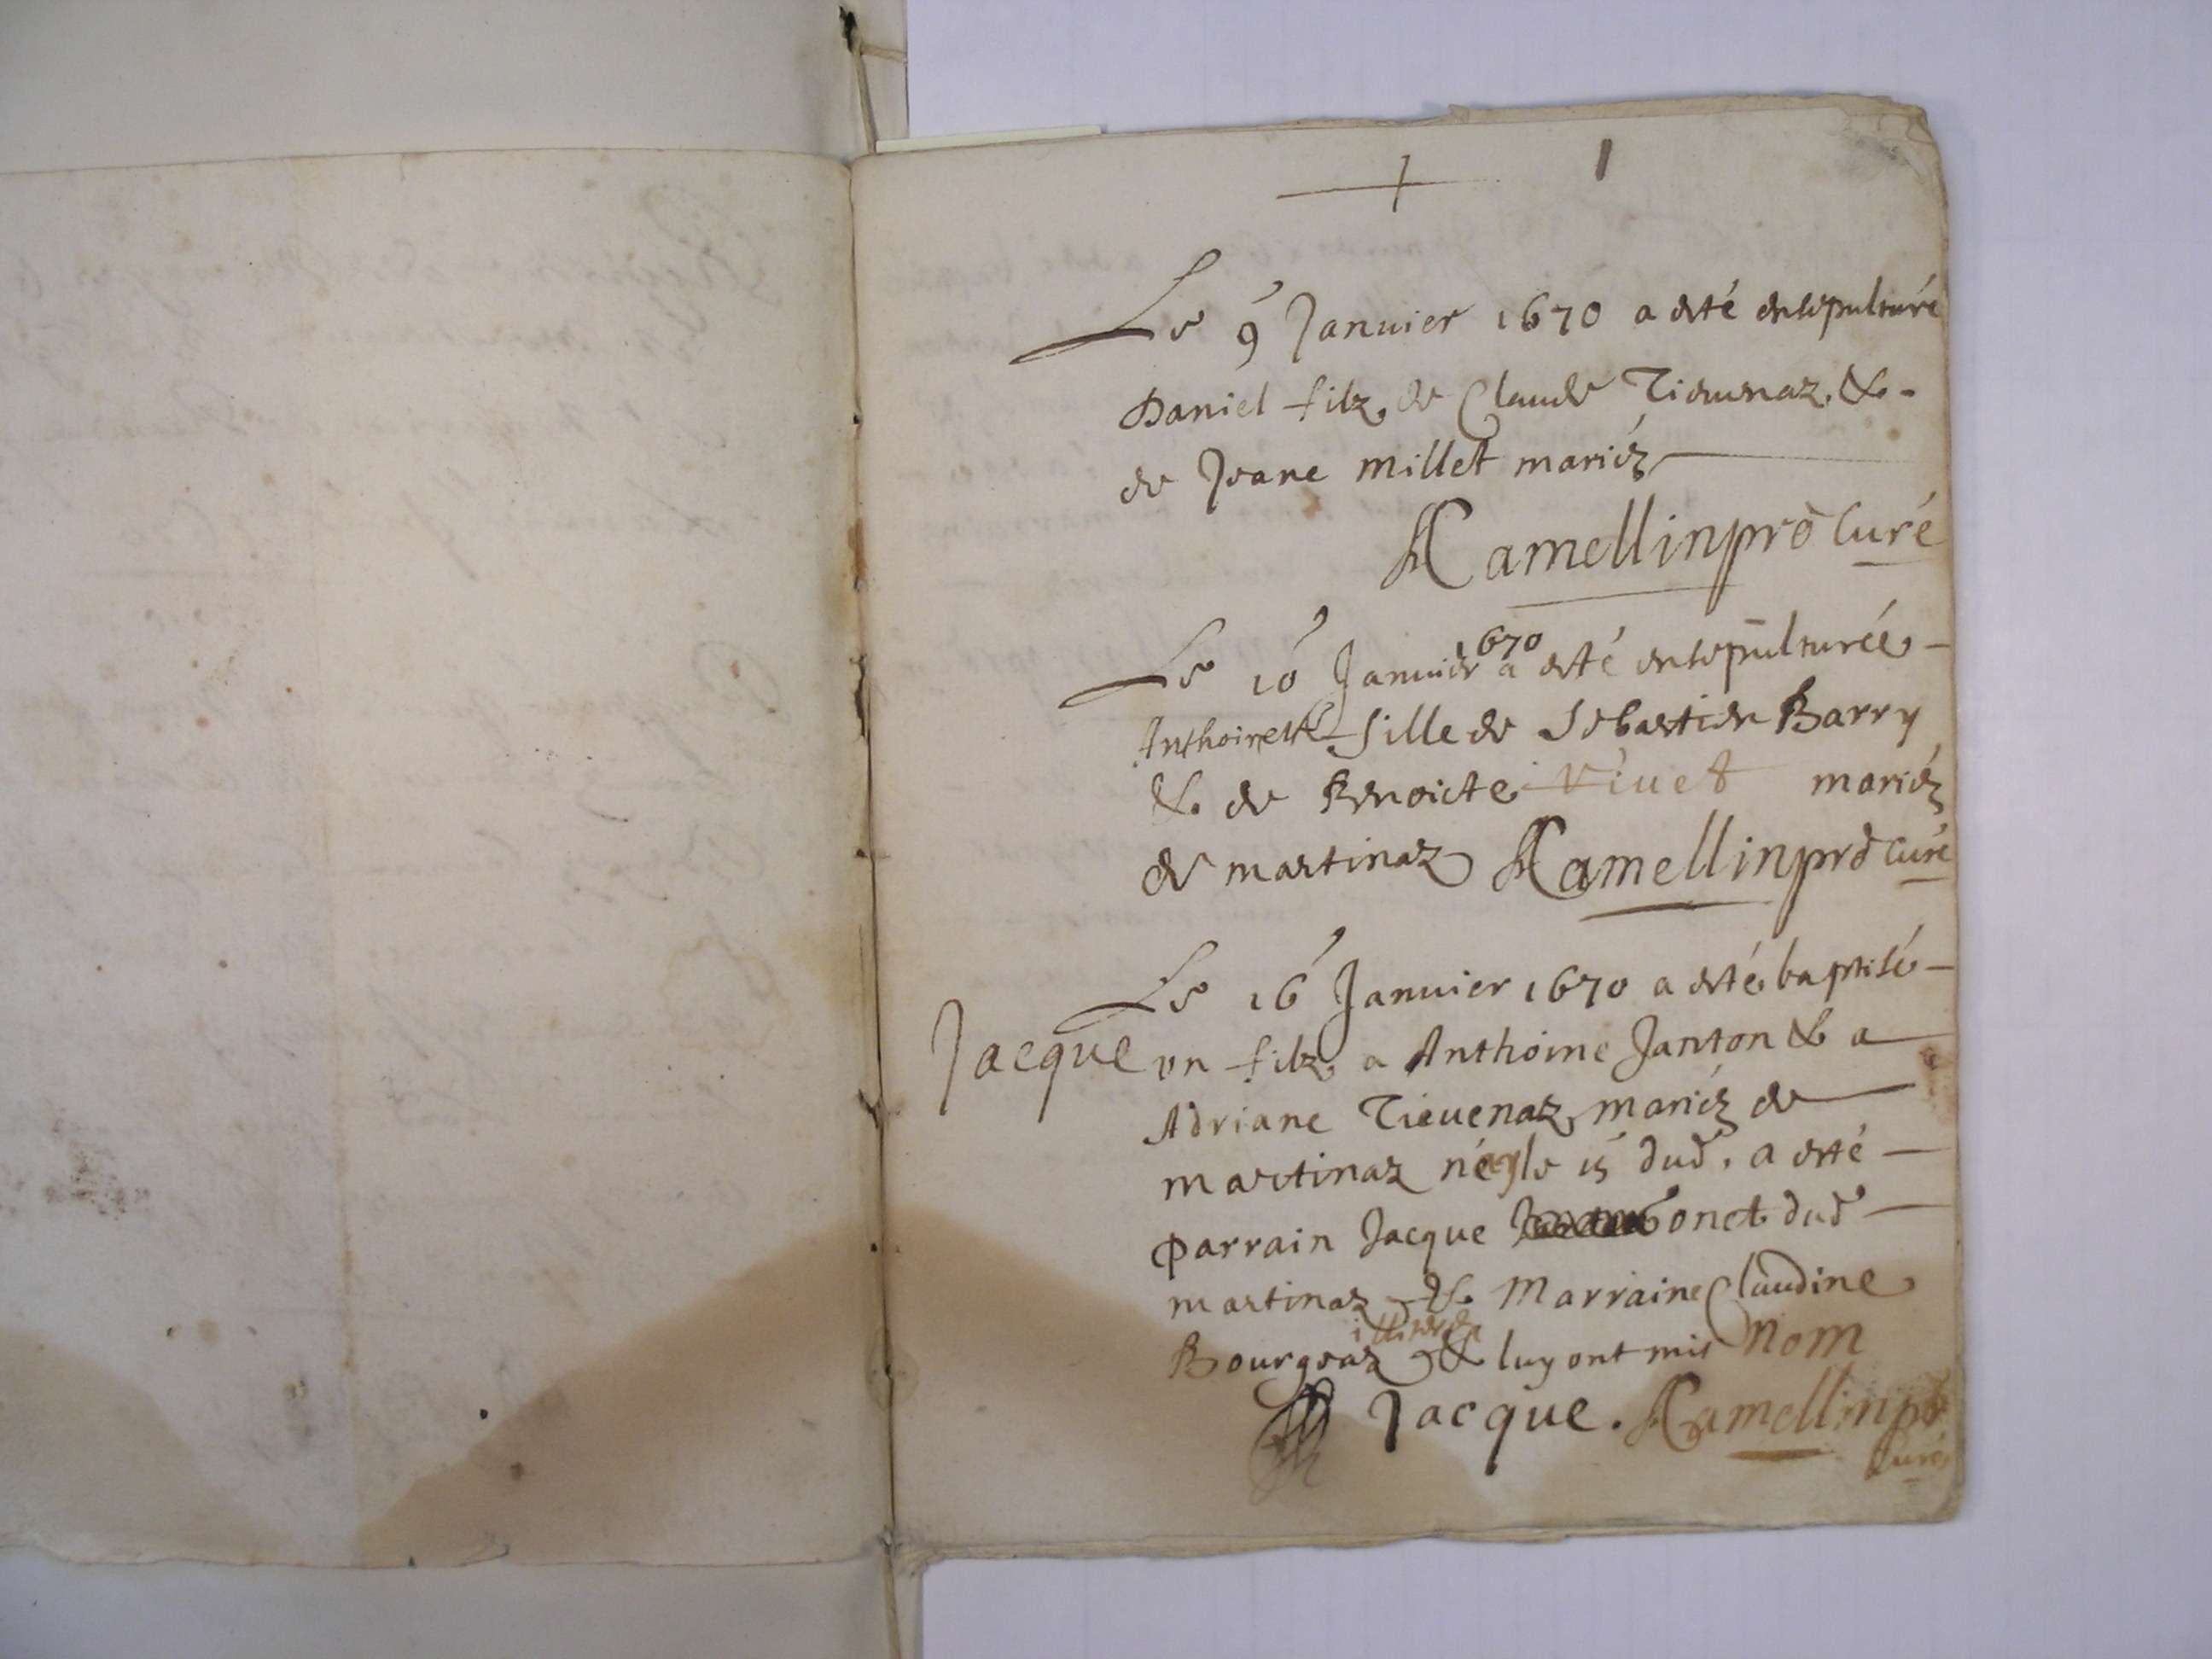 1
Le 9 Janvier 1670 a esté ensepulturé
Daniel filz de Claude Tieuenaz &
de Jeane millet mariéz
Camellin pro Curé
Le 10 Janvier 1670 a esté ensepulturée
Anthoinette fille de Sebastien Barry
& de Benoicte Viuet mariéz
de martinaz Camellin pro Curé
Le 16 Janvier 1670 a esté baptisé
Jacque un filz a Anthoine Janton & a
Adriane Tieuenaz mariéz de
martinaz né le 15 dud. a esté
parrain Jacque onet dud
martinaz & Marraine Claudine
Bourgeaz & luy ont mis Nom
Jacque. Camellin pro
Curé